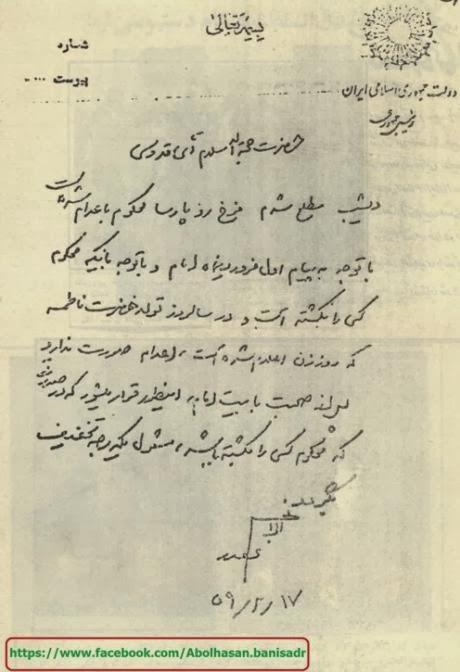 بسمه تعالی
شماره
پیوست
دولت جمهوری اسلامی ایران
رئیس جمهوری
حضرت حجة الاسلام آقای قدوسی
دیشب مطلع شدم فرخ رو پارسا محکوم باعدام شده است
با توجه به پیام اول فروردین ماه امام و با توجه باینکه محکوم
کسی را نکشته است و در سالروز تولد حضرت فاطمه
که روز زن اعلام شده است، اعدام صورت ندارد
پس از صحبت با بیت امام، اینطور قرار میشود که در صورتی
که محکوم کسی را نکشته باشد، مشمول یک درجه تخفیف
۵۹/۲/۱۷
https://www.facebook.com/Abolhasan.banisadr